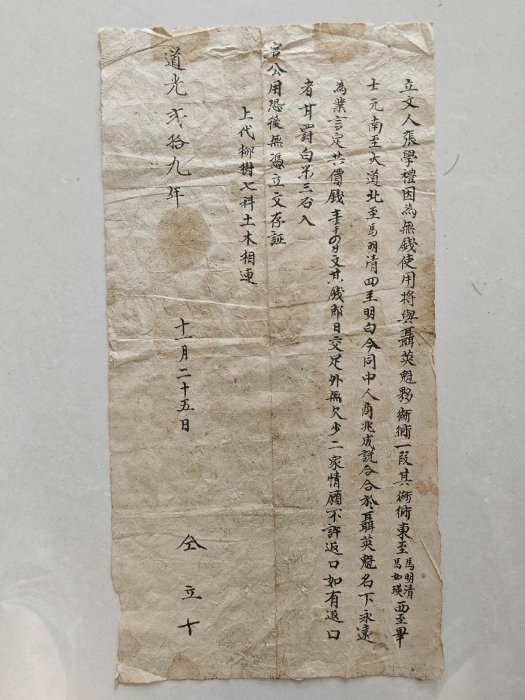 立文人張學禮因為無錢使用將與聶英魁夥衚衕一段其衚衕東至馬明清馬如瑛西至畢
士元南至大道北至馬明清四至明白今同中人商兆成説合合於聶英魁名下永遠
為業言定共價錢文其錢即日交足外無欠少二家情願不許返口如有返口
者甘罰白米三石入
官公用恐後無憑立文存証
上代柳樹七科土木相連
道光貳拾九年 十一月二十五日 立十